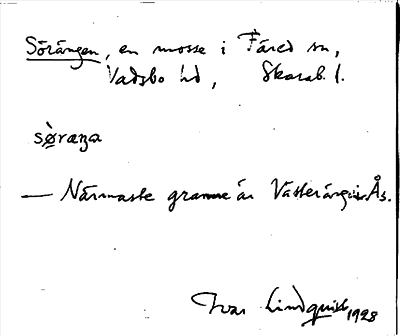 Sörängen, en mosse i Färed sn,
Vadsbo hd, Skarab. l.
sø̀raŋa
— Närmaste granne är Västerängen i Ås.
Ivar Lindquist 1928